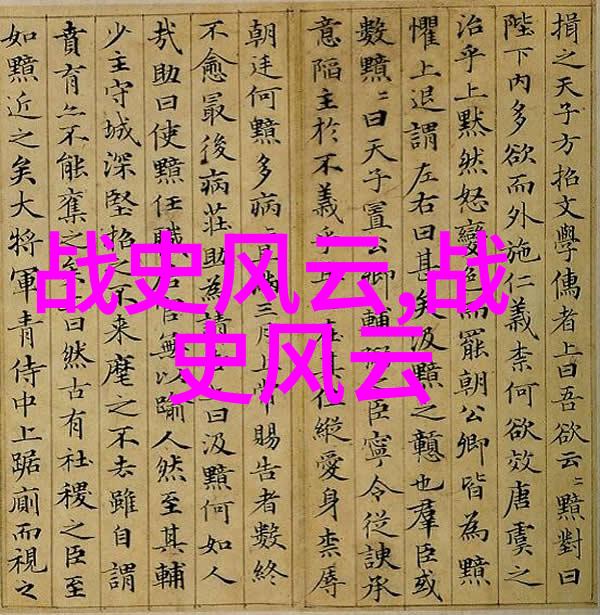 揖之天子方招文學儒者上曰吾欲云〻黯對曰
陛下內多欲而外施仁義柰何欲效唐虞之
治乎上黙然怒變色而罷朝公卿皆為黯
懼上退謂左右曰甚矣汲黯之戇也羣臣或
數黯〻曰天子置公卿輔之臣寧令從諛承
意陷主於不義乎位縱愛身柰辱
朝廷何黯多病滿三月上常賜告者數終
不愈最後病莊助為請曰汲黯何如人
哉助曰使黯任職居官無以踰人然至其輔
少主守城深堅招之不来麾之不去雖自謂
賁育亦不能奪之曰然古有社稷之臣至
如黯近之矣大將軍青侍中上踞廁而視之
战史风云,战
史风云